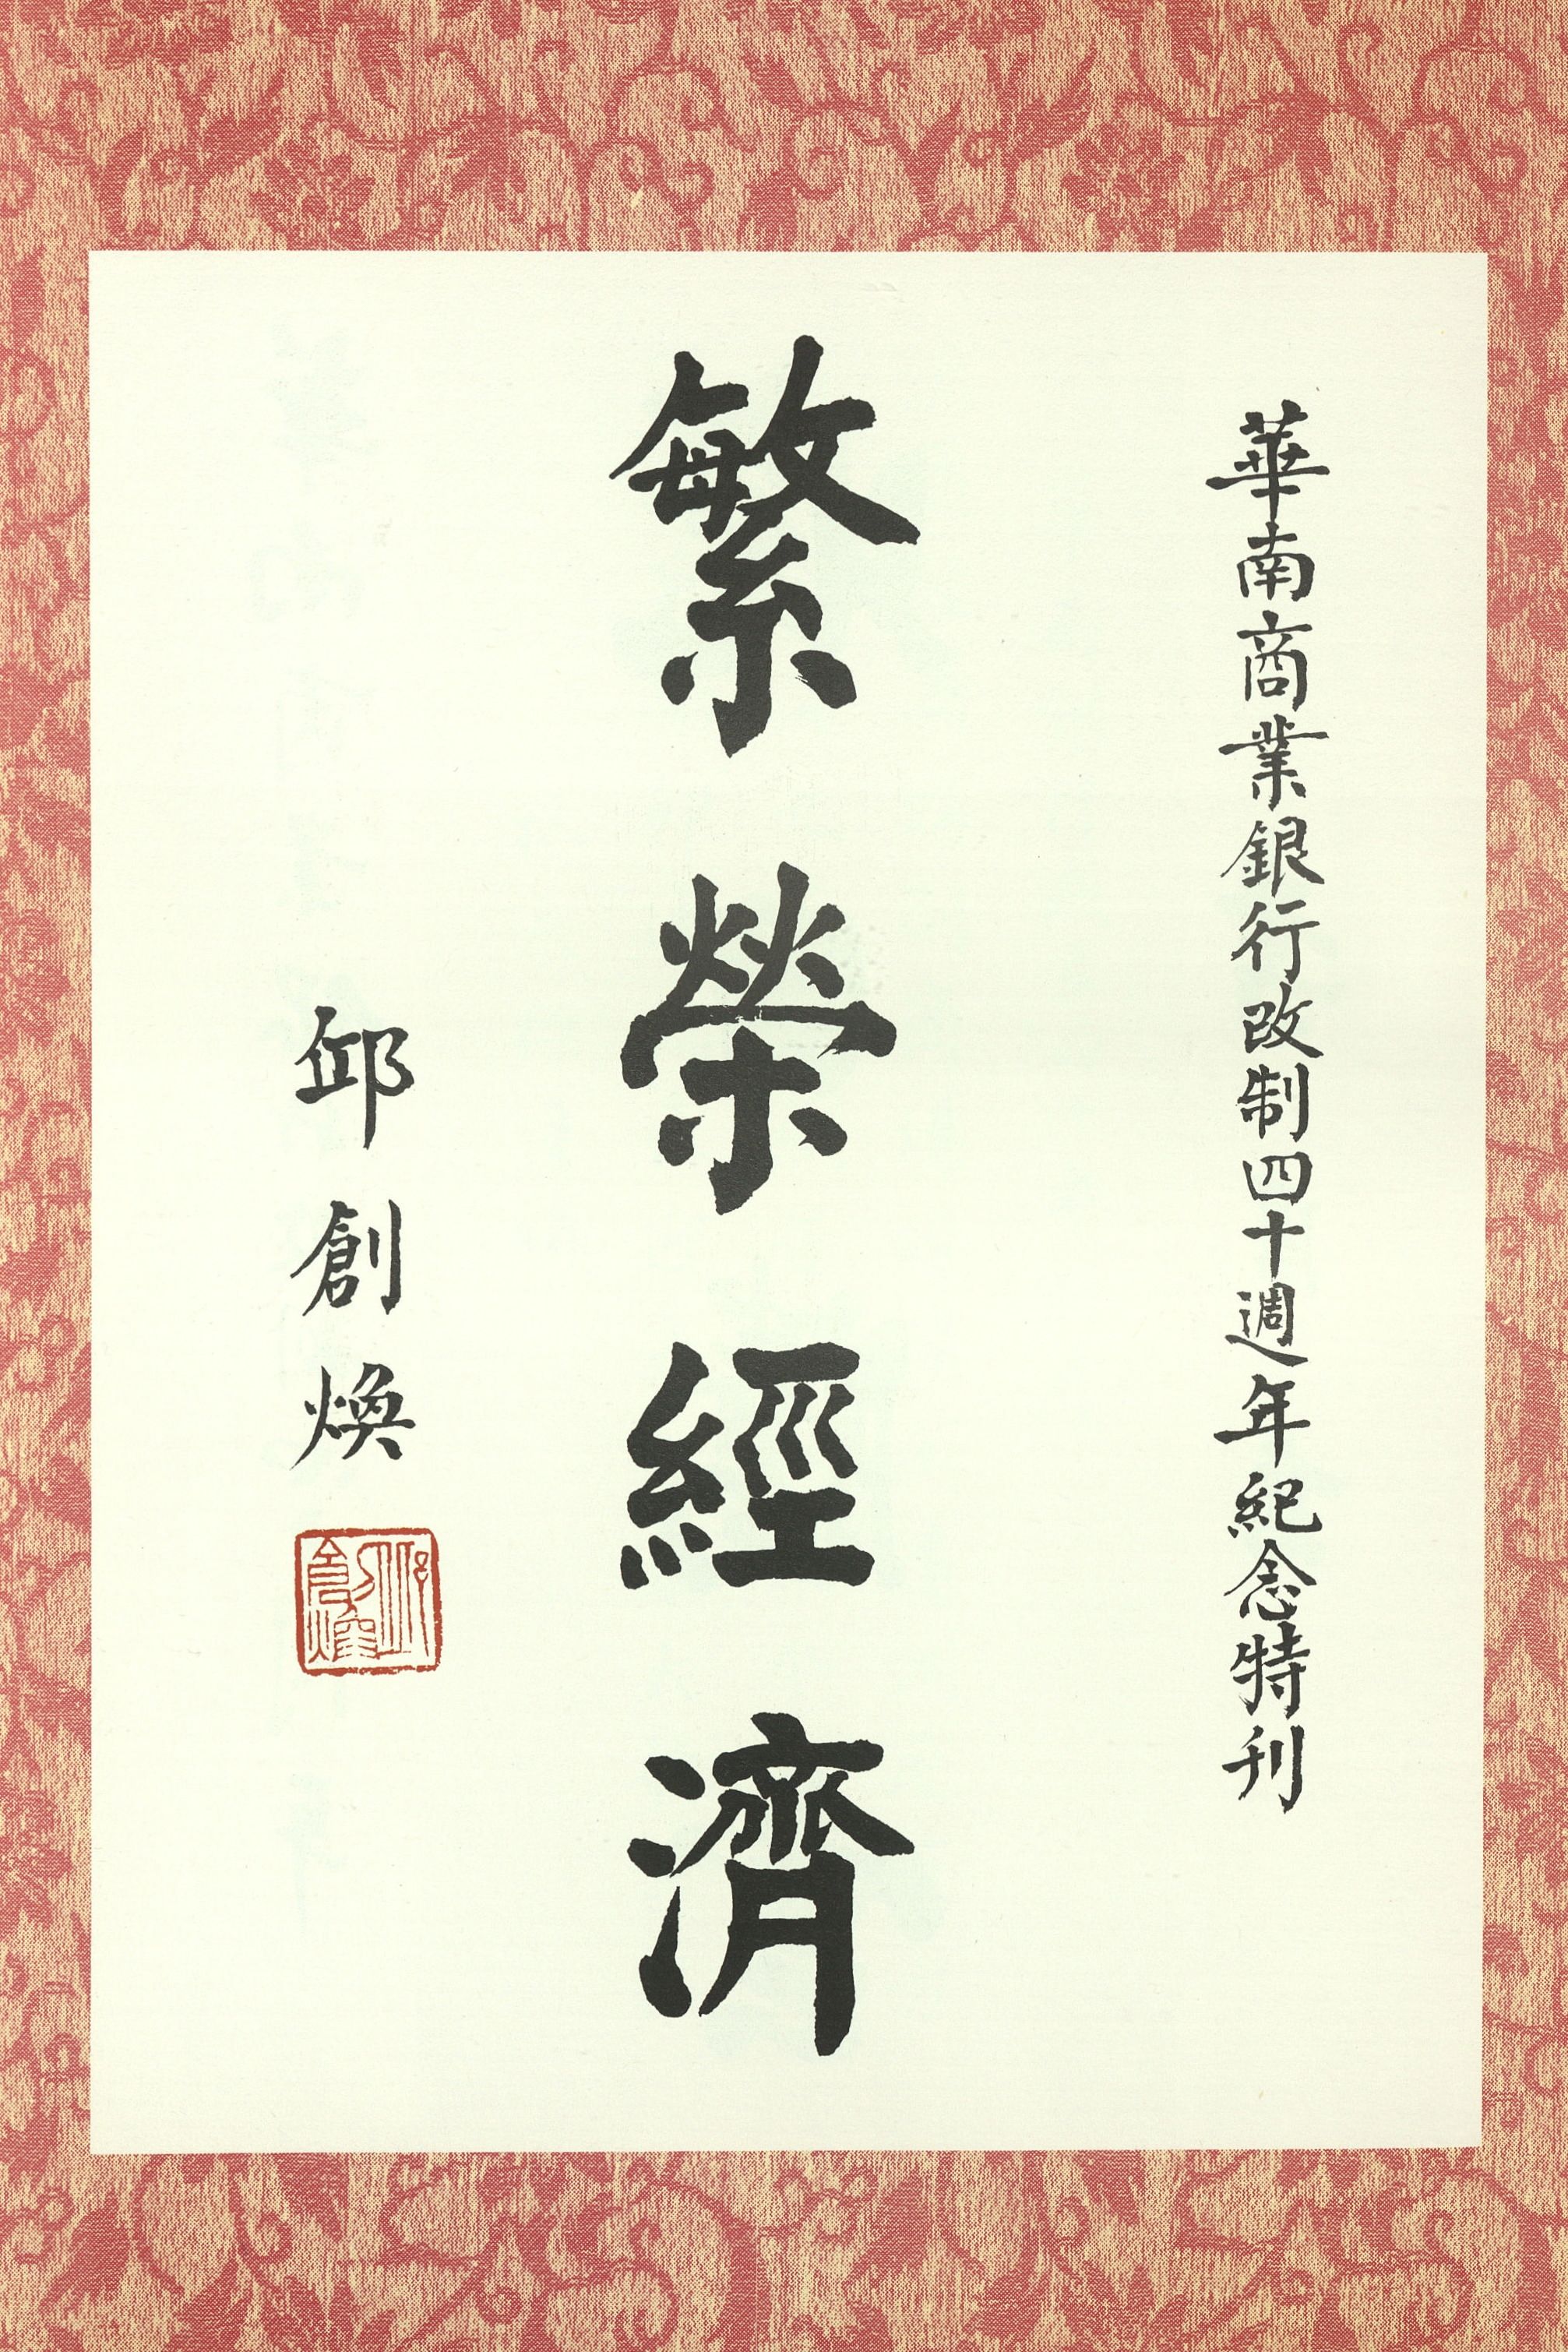 華南商業銀行改制四十週年紀念特刊
繁榮經濟
邱創煥
邱創煥